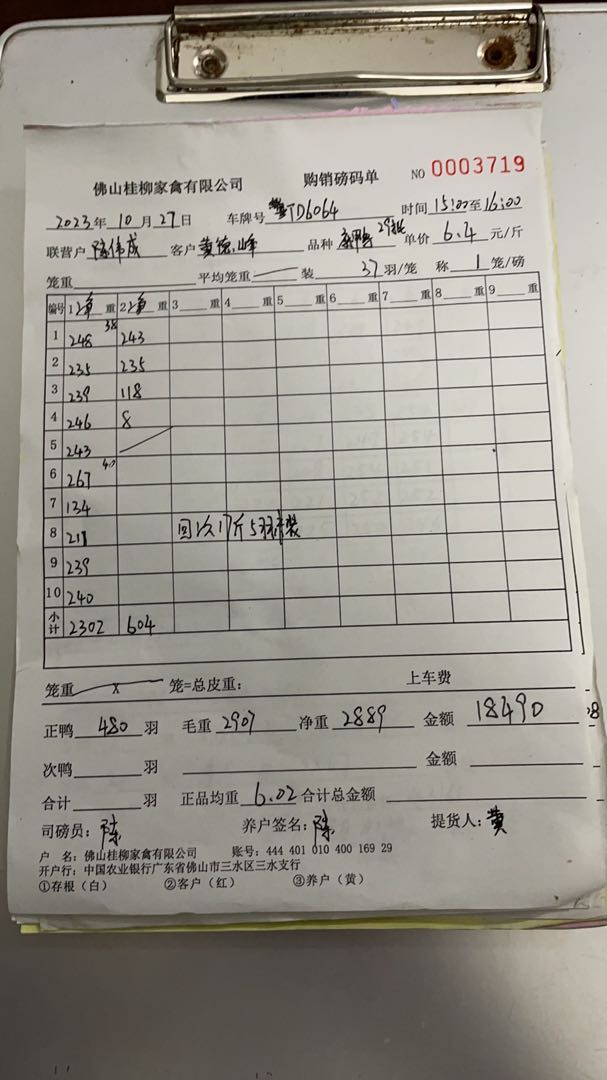 佛山桂柳家禽有限公司 购销磅码单 NO 0003719
2023年 10 月 27日 车牌号 TD6064 时间 15:00至16:00
联营户 陈伟成 客户 黄德峰 品种 单价 6.4 元/斤
笼重 平均笼重 装 37 羽/笼 称 1 笼/磅
编号 1 重 2 重 3 重 4 重 5 重 6 重 7 重 8 重 9 重
1 248 38 243
2 235 235
3 239 118
4 246 8
5 243
6 267 40
7 134
8 211 回次17斤5羽
9 239
10 240
小计 2302 604
笼重 x 笼=总皮重: 上车费
正鸭 480 羽 毛重 2907 净重 2889 金额 18490
次鸭 羽 金额
合计 羽 正品均重 6.02 合计总金额
司磅员: 陈 养户签名: 陈 提货人: 黄
户 名: 佛山桂柳家禽有限公司 账号: 444 401 010 400 169 29
开户行: 中国农业银行广东省佛山市三水区三水支行
①存根(白) ②客户(红) ③养户(黄)